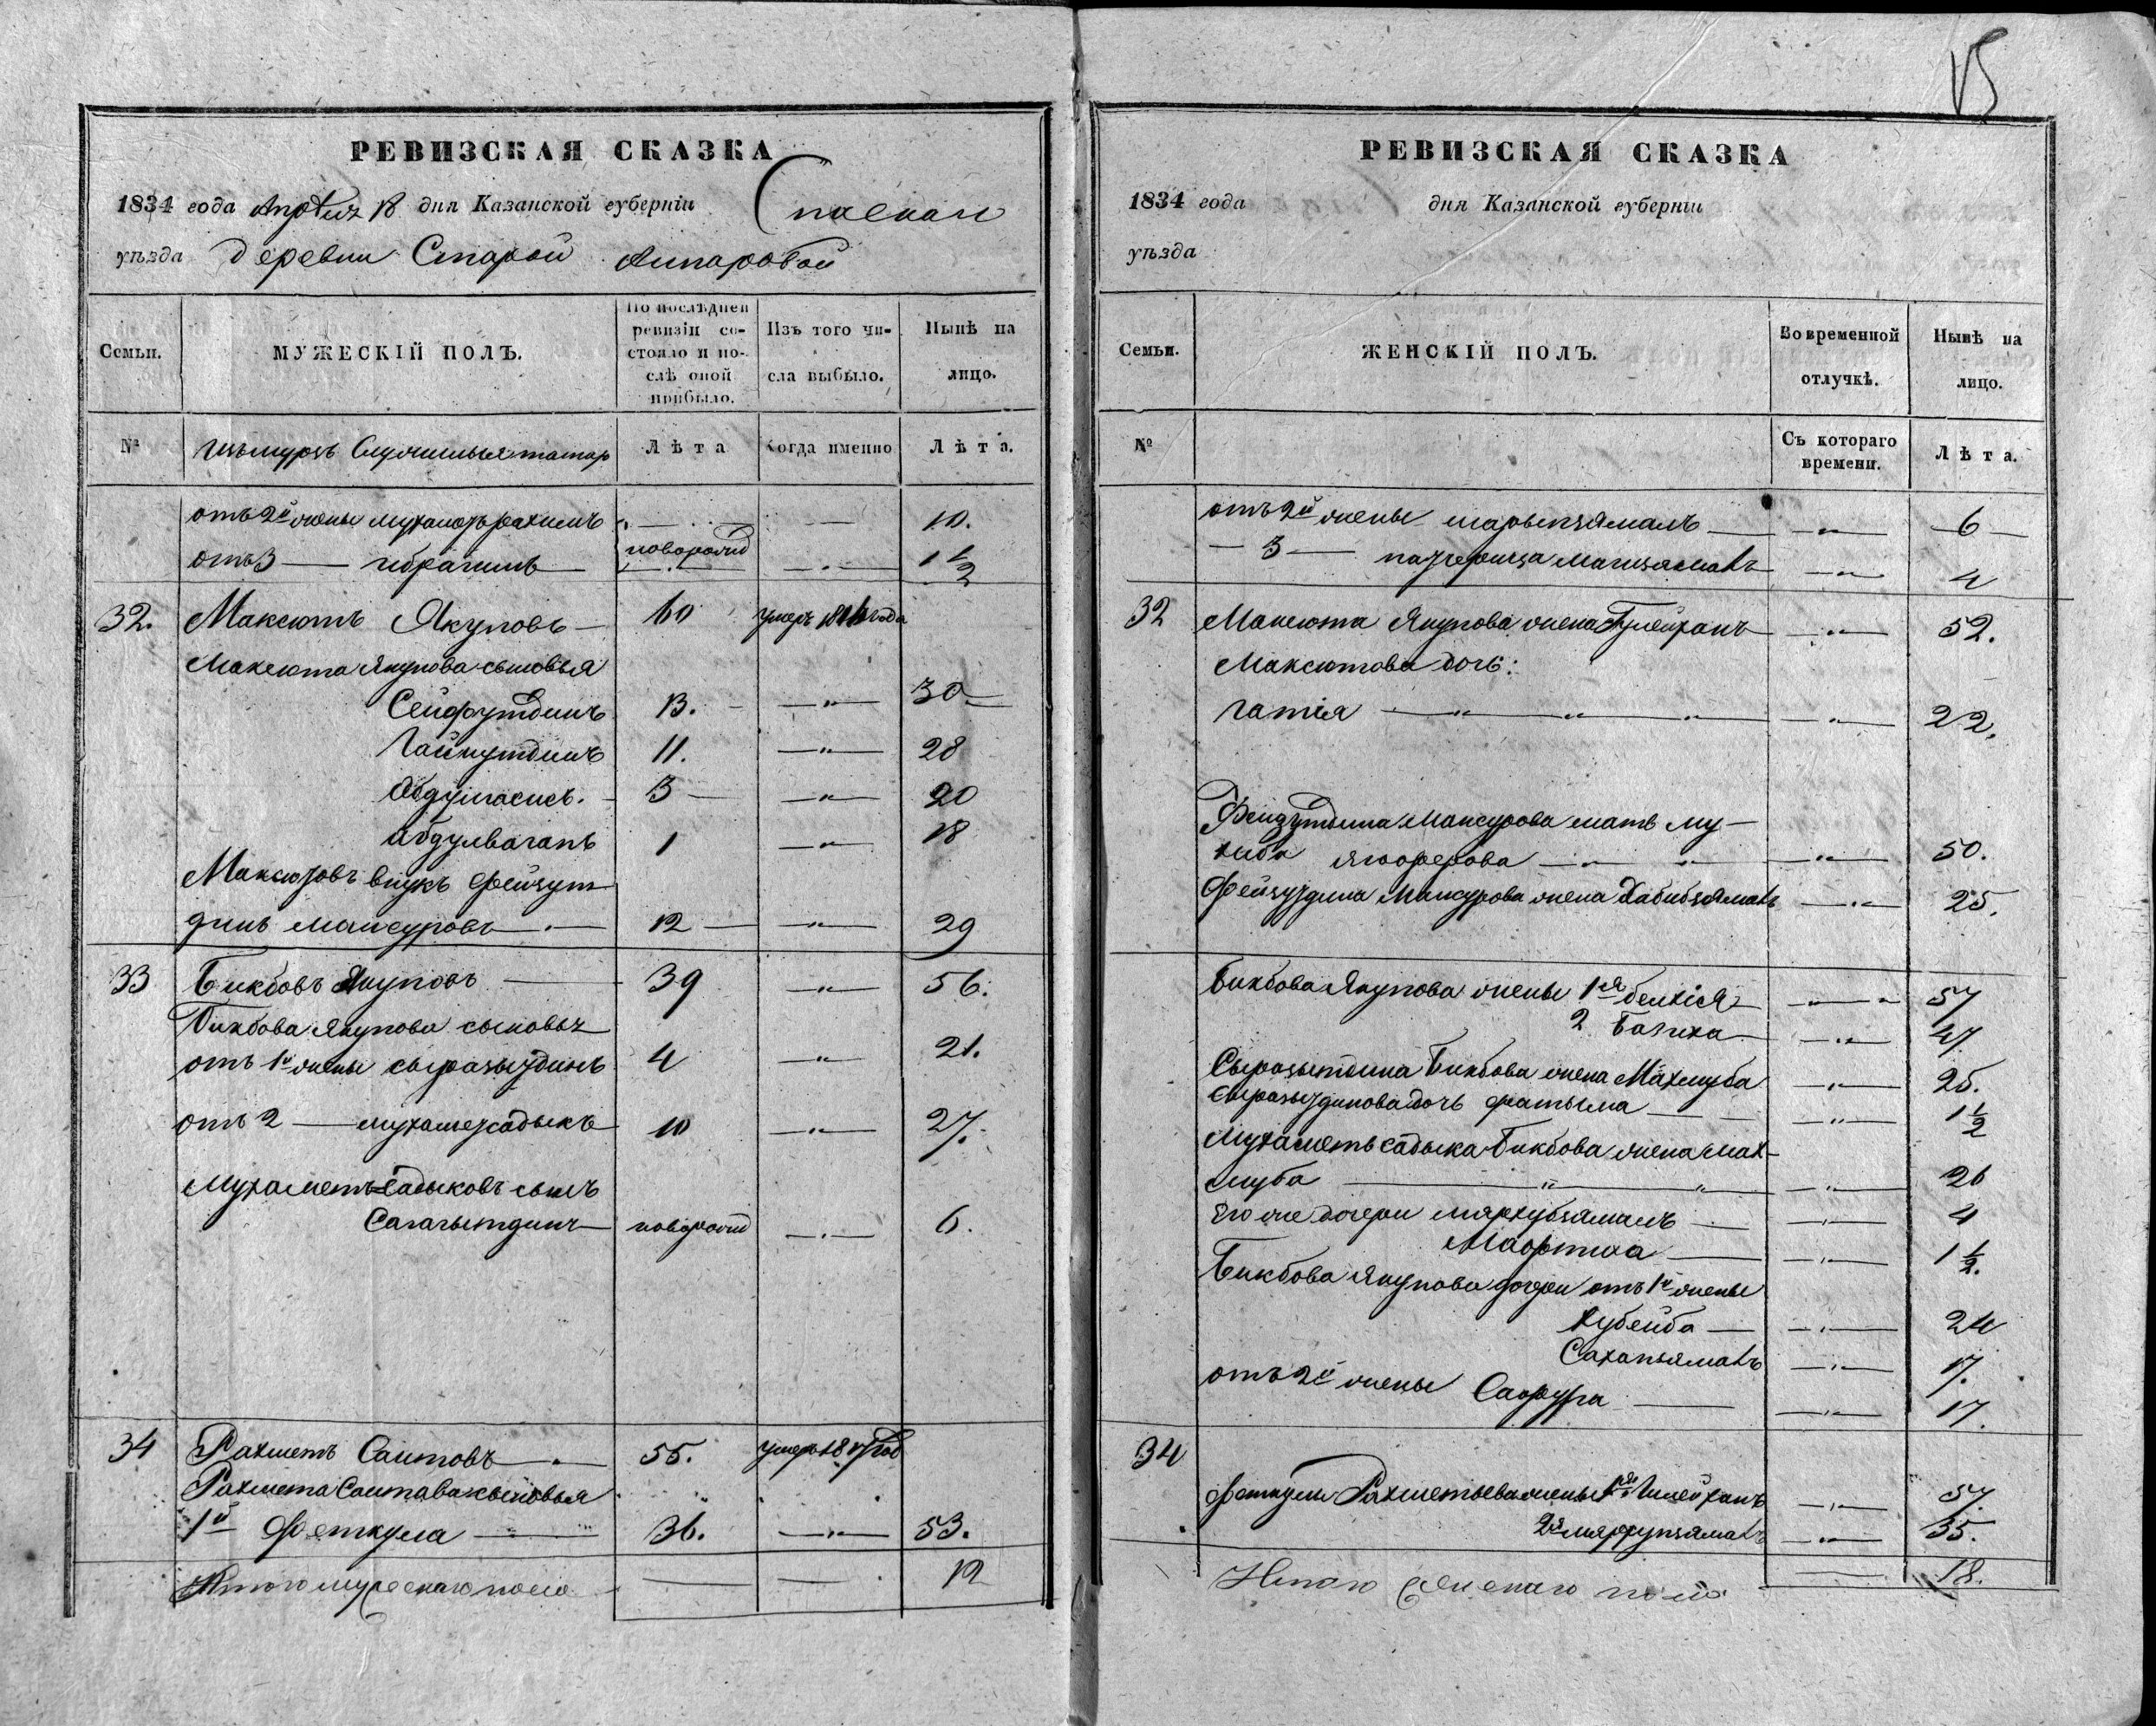 РЕВИЗСКАЯ СКАЗКА
1834 года Апреля 18 дня Казанской губернiи Спаскаго
уѣзда деревни Старой
Семьи.
МУЖЕСКIЙ ПОЛЪ.
По послѣдней ревизiи состояло и послѣ оной прибыло.
Изъ того числа выбыло.
Нынѣ на лицо.
№
изъ мурзъ Служилыя татар
Лѣта
Когда именно
Лѣта.
отъ 2й жены Мухаметърахимъ 10.
отъ 3 — Ибрагимъ новорожд 1 1/2
32. Максютъ Якуповъ 60 умеръ года
Максюта Якупова сыновья
Сейфутдинъ 13. 30
Гайнутдинъ 11. 28
Абдулгасисъ. 3 20
Абдулваганъ 1 18
Максютовъ внукъ Фейзут
динъ Мансуровъ 12 29
33 Бикбовъ Якуповъ 39 56.
Бикбова Якупова сыновья
отъ 1й жены Сыразытдинъ 4 21.
отъ 2 — Мухаметсадыкъ 10 27.
Мухаметъсадыковъ сынъ
Салагытдинъ новорожд 6.
34 Рахметъ Саитовъ 55. умеръ год
Рахмета Саитава сыновья
1й Феткула 36. 53.
Итого мужескаго пола 12
15
РЕВИЗСКАЯ СКАЗКА
1834 года дня Казанской губернiи
уѣзда
Семьи.
ЖЕНСКIЙ ПОЛЪ.
Во временной отлучкѣ.
Нынѣ на лицо.
№
Съ котораго времени.
Лѣта.
отъ 2й жены Шарыпзямалъ 6
— 3 — Магизямалъ 4
32 Максюта Якупова жена Гулейханъ 52.
Максютова дочь:
Гатiя 22.
Фейзутдина Мансурова мать Му-
хиба Ягоферова 50.
Фейзутдина Мансурова жена Хабибзямалъ 25.
Бикбова Якупова жены 1я Белкiся 57
2 Базиха 47
Сыразытдина Бикбова жена Махмуба 25.
Сыразытдинова дочь Фатыма 1 1/2
Мухаметьсадыка Бикбова жена Мах-
муба 26
Его же дочери Мярхубзямалъ 4
Мафтиха 1 1/2.
Бикбова Якупова дочери отъ 1й жены
Хубейба 24
Сахапзямалъ 17.
отъ 2й жены Сафура 17.
34
Феткулы Рахметьева жены 1я 57.
2я 35.
Итого женскаго пола 18.